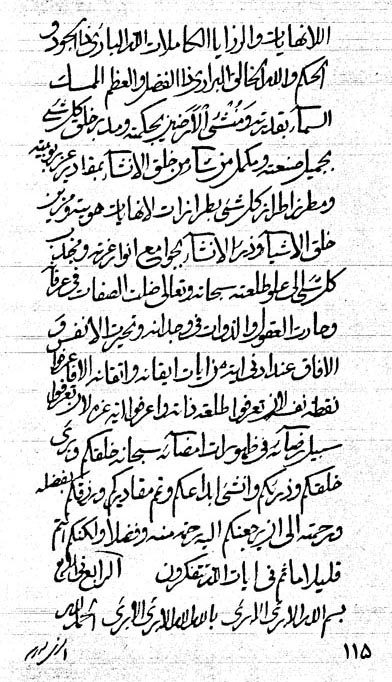 اللانهايات والرزايا الكاملات الله الباري ذا الجود و
الحكم والله الخالق البراري ذا الفضل والعظم الممسك
السماء بقدرته ومنشئ الأرضين بحكمته ومدبر خلق كل شيء
بجميل صنعته ومكمل من شاء من خلق الانشاء بمقادير عز
ومطرز اطراز كل شيء بطرازات لانهايات هويته ومزين
خلق الاشياء وذر الانشاء بجوامع انوار عزته ومنجذب
كل شيء الى علو طلعته سبحانه وتعالى ضلت الصفات في عرفانه
وحارت العقول والذوات في وجدانه وتحيرت الانفس و
الافاق عند ادنى اية من ايات ايقانه واتقانه الا فاعرفوا
نقطة نفس الله لان تعرفوا طلعة ذاته واعرفوا اية عزه لان تعرفوا
سبل رضائه في ظهورات امضائه سبحانه خلقكم وبرئ
خلقكم وذرئكم وانشئ ابداعكم وتم مقاديركم ورزقكم بفضله
ورحمته الى ان يرجعنكم اليه رحمة منه وفضلا ولكنكم انتم
قليلا ما انتم في ايات الله تتفكرون الرابع في الرابع
بسم الله الابرئ الابرئ بالله الله الابرئ الابرئ الحمد لله
١١٥